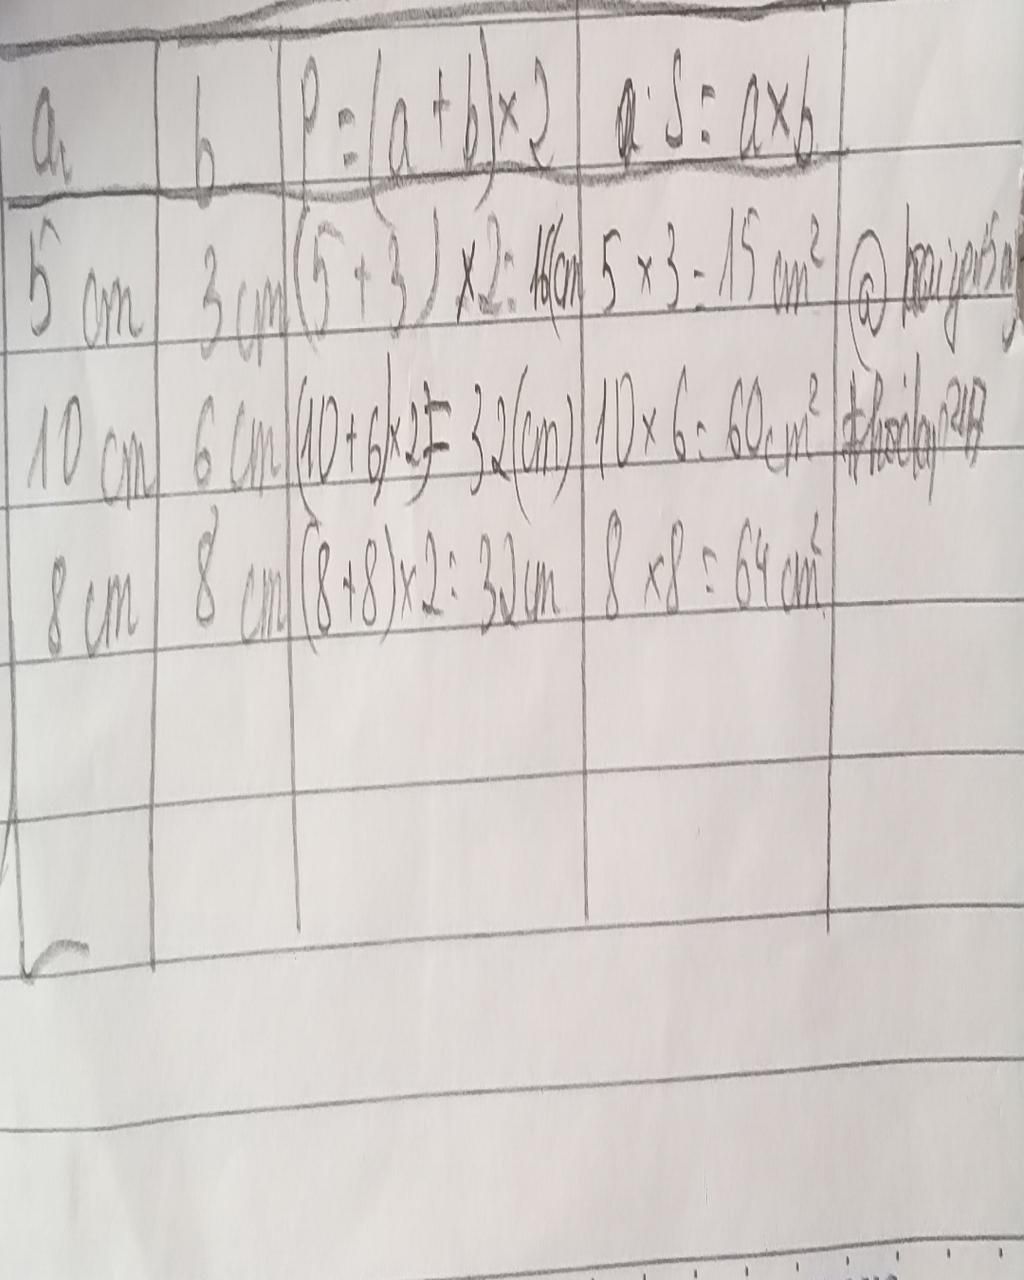 a b P = (a + b) × 2 S = a × b
5 cm 3 cm (5 + 3) × 2 = 16(cm 5 × 3 = 15 cm²
10 cm 6 cm (10 + 6) × 2 = 32(cm) 10 × 6 = 60cm²
8 cm 8 cm (8+8) × 2 = 32cm 8 × 8 = 64 cm²